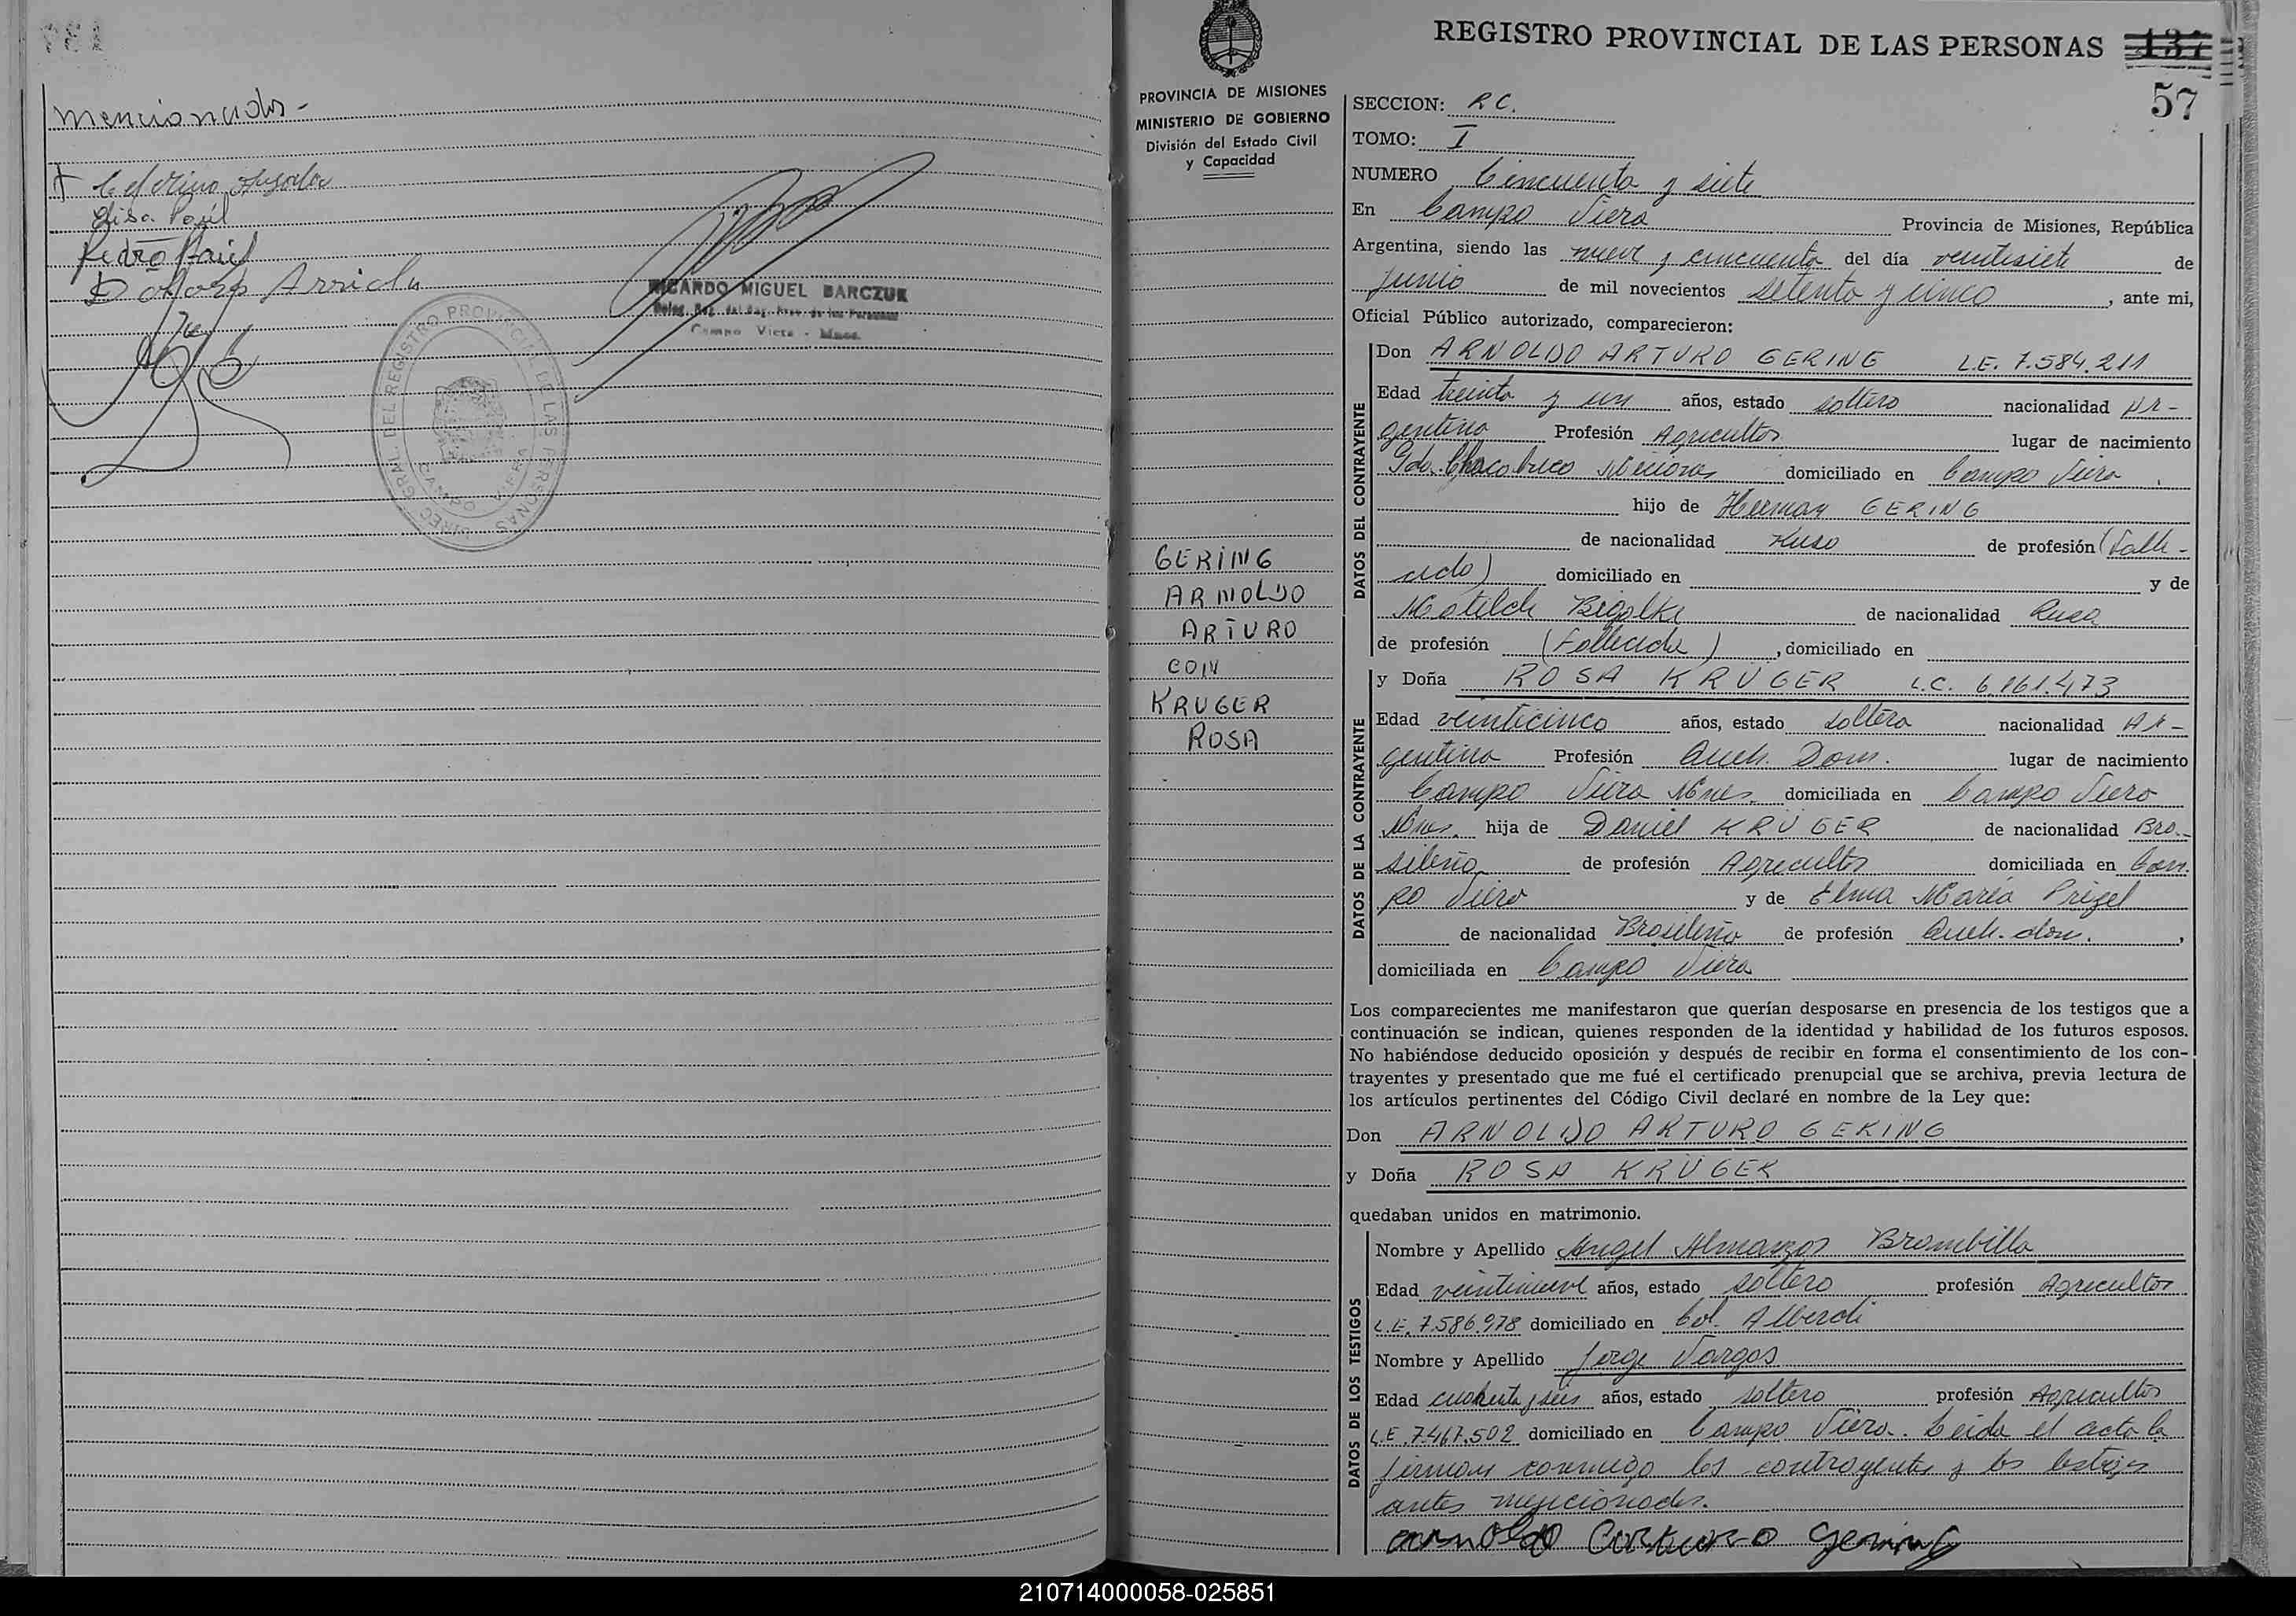 mencionados -
Elisa Paúl
Pedro Paúl
RICARDO MIGUEL BARCZUK
Campo Viera - Mnes.
DIREC. GRAL. DEL REGISTRO PROVINCIAL DE LAS PERSONAS
CAMPO VIERA
REGISTRO PROVINCIAL DE LAS PERSONAS 137
57
PROVINCIA DE MISIONES
MINISTERIO DE GOBIERNO
División del Estado Civil
y Capacidad
GERING
ARNOLDO
ARTURO
CON
KRUGER
ROSA
SECCION: R C.
TOMO: I
NUMERO Cincuenta y siete
En Campo Viera Provincia de Misiones, República
Argentina, siendo las nueve y cincuenta del día veintisiete de
Junio de mil novecientos setenta y cinco, ante mi,
Oficial Público autorizado, comparecieron:
DATOS DEL CONTRAYENTE
Don ARNOLDO ARTURO GERING L.E. 7.584.211
Edad treinta y un años, estado soltero nacionalidad Ar-
gentina Profesión Agricultor lugar de nacimiento
Misiones domiciliado en Campo Viera
hijo de Herman GERING
de nacionalidad Ruso de profesión (Falle-
cido) domiciliado en y de
Matilde de nacionalidad Rusa
de profesión (Fallecida), domiciliado en
DATOS DE LA CONTRAYENTE
y Doña ROSA KRÜGER L.C. 6.161.473
Edad veinticinco años, estado soltera nacionalidad Ar-
gentina Profesión Queh. Dom. lugar de nacimiento
Campo Viera Mnes. domiciliada en Campo Viera
Mnes. hija de Daniel KRÜGER de nacionalidad Bra-
sileño de profesión Agricultor domiciliada en Cam
po Viera y de Elma María Prigel
de nacionalidad Brasileña de profesión Queh. dom.,
domiciliada en Campo Viera
Los comparecientes me manifestaron que querían desposarse en presencia de los testigos que a
continuación se indican, quienes responden de la identidad y habilidad de los futuros esposos.
No habiéndose deducido oposición y después de recibir en forma el consentimiento de los con-
trayentes y presentado que me fué el certificado prenupcial que se archiva, previa lectura de
los artículos pertinentes del Código Civil declaré en nombre de la Ley que:
Don ARNOLDO ARTURO GERING
y Doña ROSA KRÜGER
quedaban unidos en matrimonio.
DATOS DE LOS TESTIGOS
Nombre y Apellido Angel Almanzor Brombilla
Edad veintinueve años, estado soltero profesión Agricultor
L.E. 7.586.978 domiciliado en Col. Alberdi
Nombre y Apellido Jorge Vargas
Edad cuarenta y seis años, estado soltero profesión Agricultor
L.E. 7.467.502 domiciliado en Campo Viera. Leida el acta la
firman conmigo los contrayentes y los testigos
antes mencionados.
Arnoldo Arturo Gering
210714000058-025851